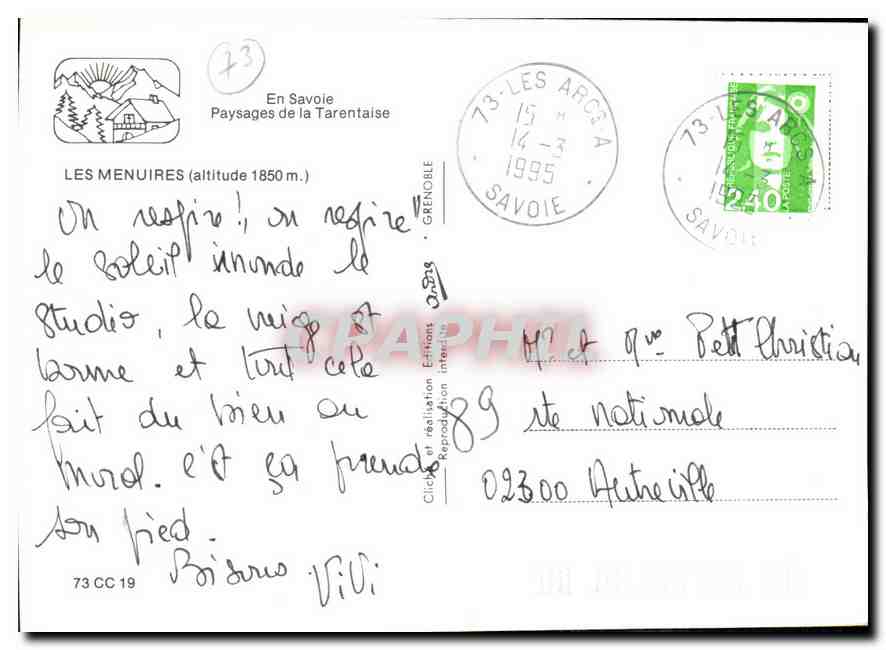 73
En Savoie
Paysages de la Tarentaise
LES MENUIRES (altitude 1850 m.)
On respire!, on respire"
le soleil inonde le
studio, la neige est
bonne et tout cela
fait du bien au
moral. c'est ça prendre
son pied.
Bisous ViVi
73 CC 19
Cliché et réalisation Editions andré GRENOBLE
Reproduction interdite
73-LES ARCS-A
15 H
14-3
1995
SAVOIE
73-LES ARCS-A
SAVOIE
REPUBLIQUE FRANÇAISE
2,40
LA POSTE
Mr et Mme Petit Christian
89 rte nationale
02300 Autreville
CPAPHIL